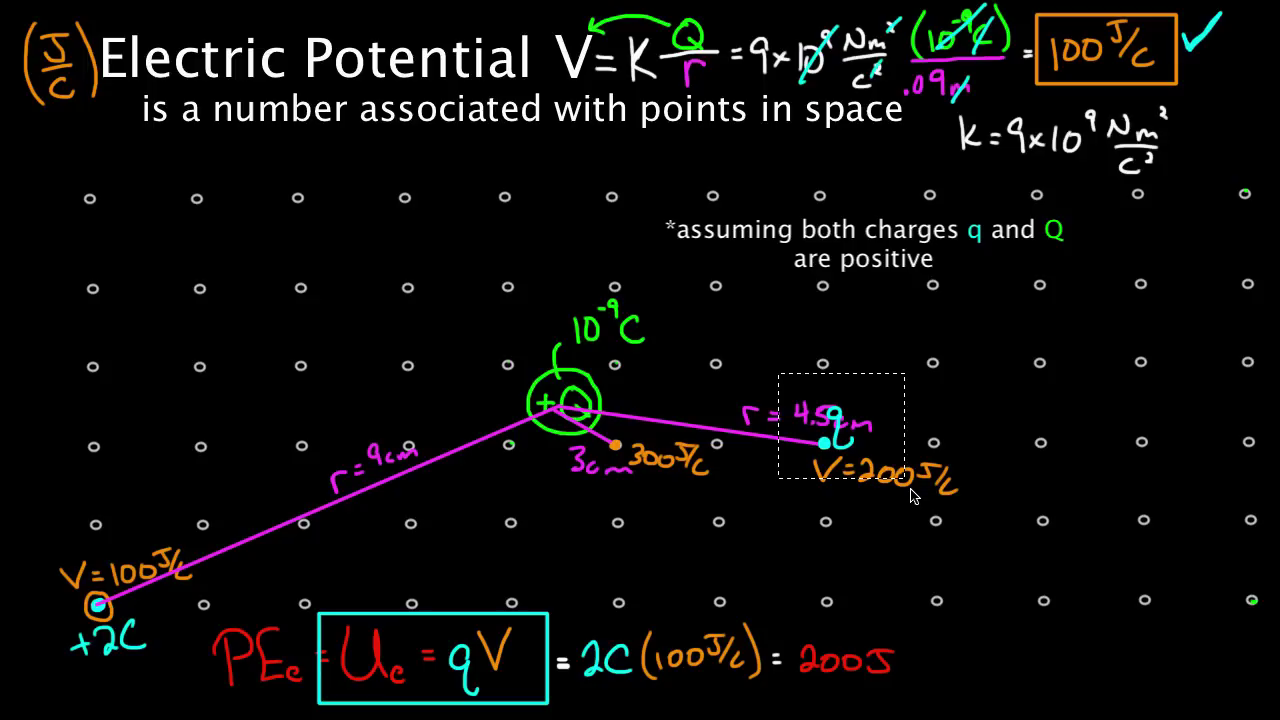 (J/C) Electric Potential V = K Q/r = 9×10⁹ Nm²/C² (10⁻⁹C)/.09m = 100 J/C ✓
is a number associated with points in space
K = 9×10⁹ Nm²/C²
*assuming both charges q and Q
are positive
10⁻⁹C
+Q
r = 4.5cm
q
r = 9cm
3cm
300 J/C
V = 200 J/C
V = 100 J/C
+2C
PEe = Ue = qV = 2C (100 J/C) = 200J